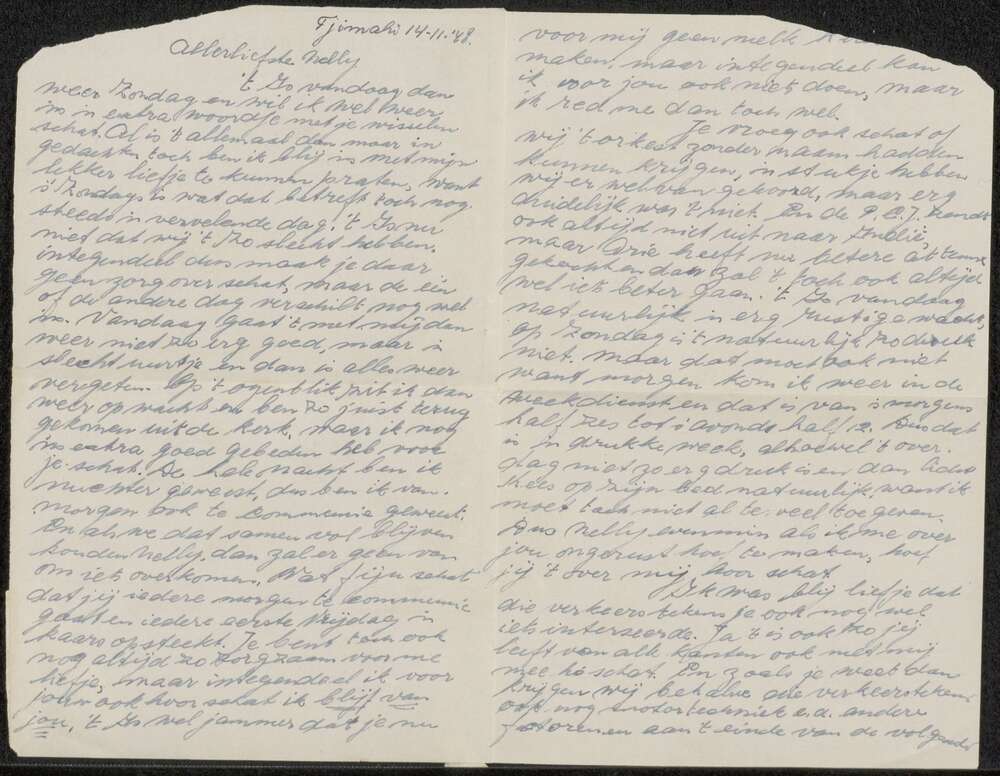 Tjimahi 14-11-'48.
Allerliefste Nelly
't Is vandaag dan
weer Zondag en wil ik wel weer
'ns 'n extra woordje met je wisselen
schat. Al is 't allemaal dan maar in
gedachten, toch ben ik blij 'ns met mijn
lekker liefje te kunnen praten, want
's Zondags is wat dat betreft toch nog
steeds 'n vervelende dag. 't Is nu
niet dat wij 't zo slecht hebben,
integendeel dus maak je daar
geen zorg over schat, maar de één
of de andere dag verschilt nog wel
'ns. Vandaag gaat 't met mij dan
weer niet zo erg goed, maar 'n
slecht uurtje en dan is alles weer
vergeten. Op 't ogenblik zit ik dan
weer op wacht en ben zo juist terug
gekomen uit de kerk, waar ik nog
'ns extra goed gebeden heb voor
je schat. De hele nacht ben ik
nuchter geweest, dus ben ik van-
morgen ook te communie geweest.
En als we dat samen vol blijven
houden Nelly, dan zal er geen van
ons iets overkomen. Wat fijn schat
dat jij iedere morgen te communie
gaat en iedere eerste vrijdag 'n
kaars opsteekt. Je bent toch ook
nog altijd zo zorgzaam voor me
liefje, maar integendeel ik voor
jou ook hoor schat ik blijf van
jou, 't Is wel jammer dat je nu
voor mij geen melk
maken, maar integendeel kan
ik voor jou ook niet doen, maar
ik red me dan toch wel.
Je vroeg ook schat of
wij 't orkest zonder naam hadden
kunnen krijgen, 'n stukje hebben
wij er wel van gehoord, maar erg
duidelijk was 't niet. En de P.C.J. zendt
ook altijd niet uit naar Indië,
maar Arie heeft nu betere antenne
gekocht en dan zal 't toch ook altijd
wel iets beter gaan. 't Is vandaag
natuurlijk 'n erg rustige wacht,
op Zondag is 't natuurlijk zo druk
niet, maar dat moet ook niet
want morgen kom ik weer in de
weekdienst en dat is van 's morgens
half zes tot 's avonds half 12. Dus dat
is 'n drukke week, alhoewel 't over-
dag niet zo erg druk is en dan ligt
Kees op zijn bed natuurlijk, want ik
moet toch niet al te veel toegeven.
Dus Nelly evenmin als ik me over
jou ongerust hoef te maken, hoef
jij 't over mij hoor schat.
Ik was blij liefje dat
die verkeerstekens je ook nog wel
iets interseerde. Ja 't is ook zo jij
leeft van alle kanten ook met mij
mee hè schat. En zoals je weet dan
krijgen wij behalve die verkeerstekens
ook nog motortechniek e.d. andere
en aan 't einde van de volgende